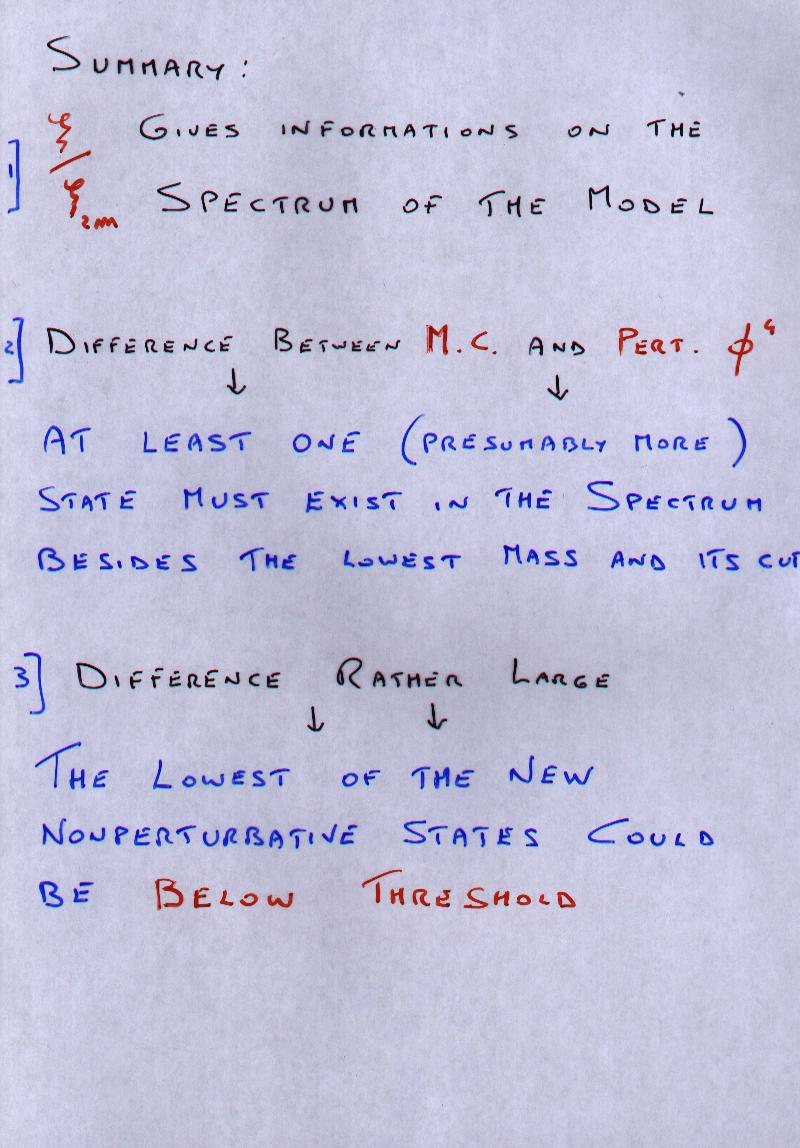 SUMMARY:
1] ξ / ξ₂ₘ GIVES INFORMATIONS ON THE
SPECTRUM OF THE MODEL
2] DIFFERENCE BETWEEN M.C. AND PERT. ϕ⁴
↓ ↓
AT LEAST ONE (PRESUMABLY MORE)
STATE MUST EXIST IN THE SPECTRUM
BESIDES THE LOWEST MASS AND ITS CUT
3] DIFFERENCE RATHER LARGE
↓ ↓
THE LOWEST OF THE NEW
NONPERTURBATIVE STATES COULD
BE BELOW THRESHOLD